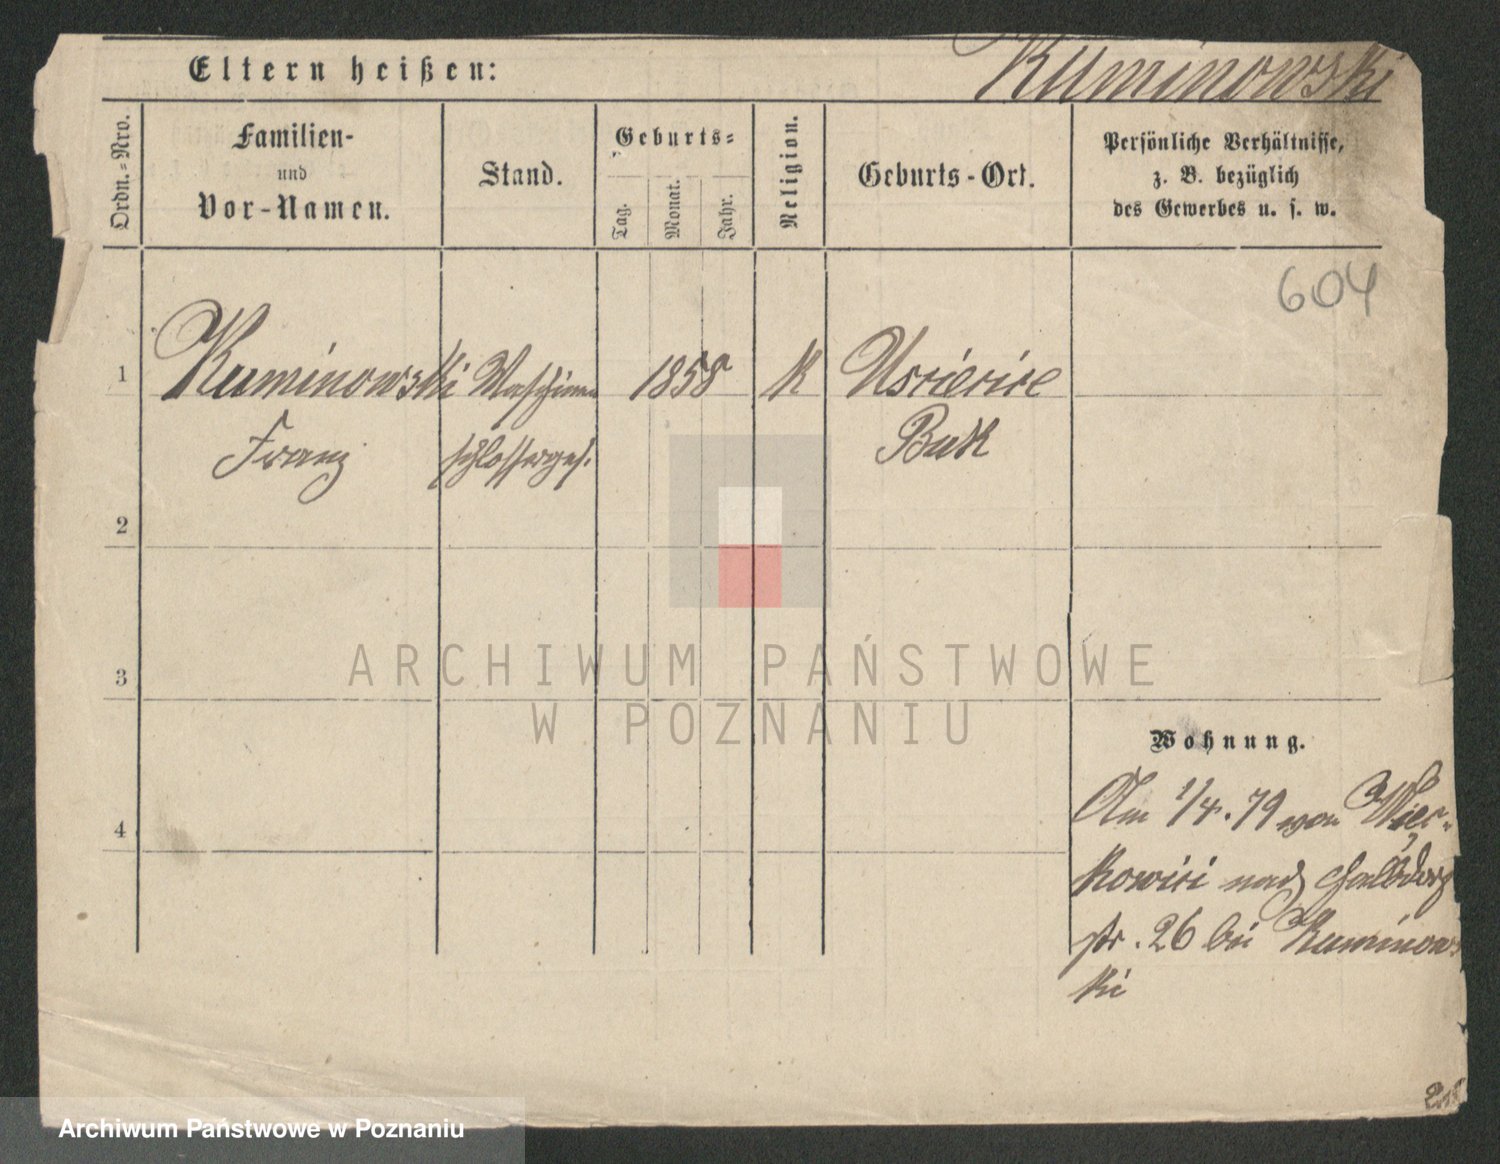 Eltern heißen:
Kuminowski
Ordn.=Nro.
Familien-
und
Vor-Namen.
Stand.
Geburts=
Tag.
Monat.
Jahr.
Religion.
Geburts-Ort.
Persönliche Verhältnisse,
z. B. bezüglich
des Gewerbes u. s. w.
604
1
Kuminowski
Maschinen
1858
K
Franz
schlosserges.
Buk
2
3
ARCHIWUM PAŃSTWOWE
W POZNANIU
Wohnung.
4
Am 1/4. 79 von Wier-
nach
str. 26 bei Kuminows
ki
Archiwum Państwowe w Poznaniu